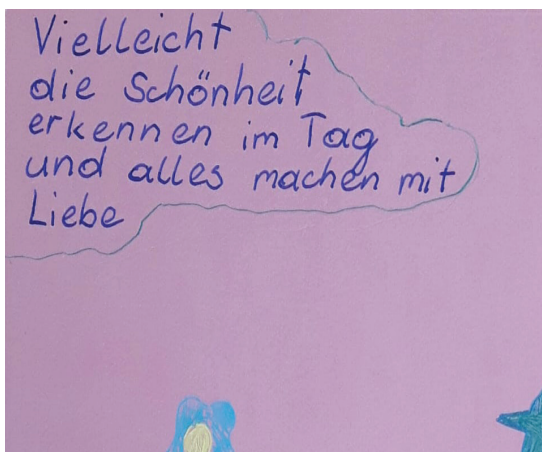 Vielleicht
die Schönheit
erkennen im Tag
und alles machen mit
Liebe